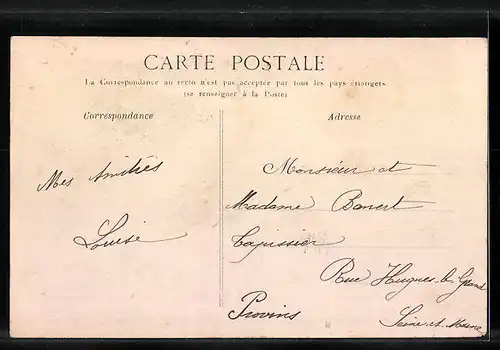 CARTE POSTALE
La Correspondance au recto n'est pas acceptée par tous les pays étrangers
(se renseigner à la Poste)
Correspondance
Adresse
Mes Amitiés
Louise
Monsieur et
Madame
Tapissier
Rue Hugues-le-Grand
Provins
Seine-et-Marne